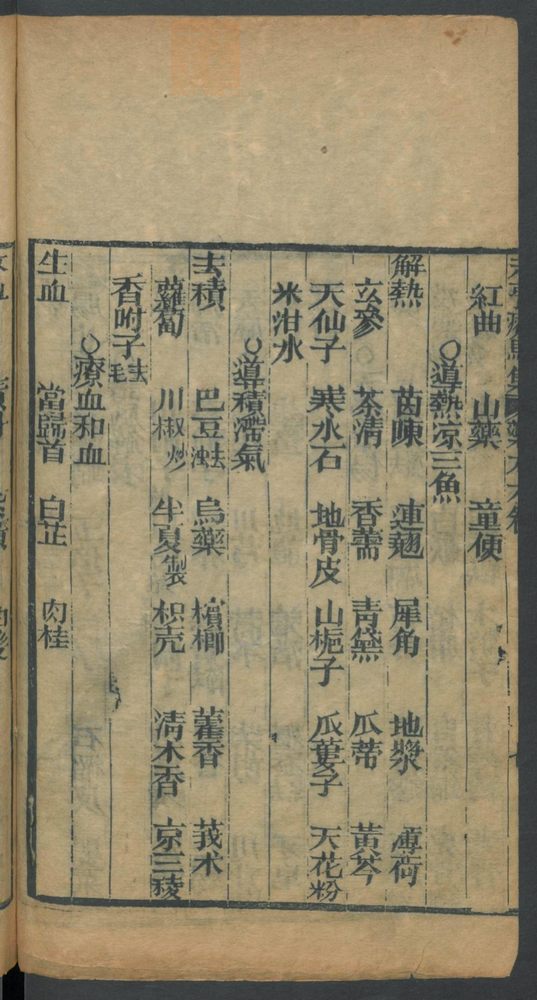 紅曲 山藥 童便
○導熱凉三焦
解熱 茵陳 連翹 犀角 地漿 薄荷
玄參 茶清 香薷 青黛 瓜蒂 黃芩
天仙子 寒水石 地骨皮 山梔子 瓜蔞子 天花粉
米泔水
○導積滯氣
去積 巴豆去油 烏藥 檳榔 藿香 莪术
蘿蔔 川椒炒 半夏製 枳壳 清木香 京三稜
香附子去毛
○療血和血
生血 當歸首 白芷 肉桂